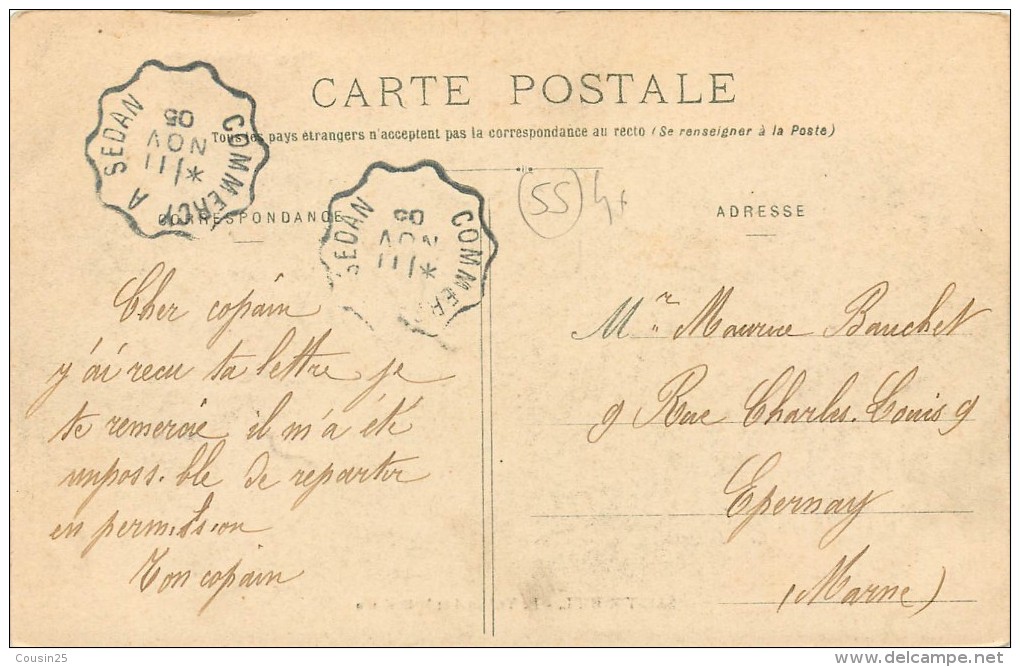 CARTE POSTALE
Tous les pays étrangers n'acceptent pas la correspondance au recto (Se renseigner à la Poste)
COMMERCY A SEDAN
*/11
NOV
05
COMMER SEDAN
*/11
NOV
55
CORRESPONDANCE
ADRESSE
Cher copain
y'ai recu ta lettre je
te remercie il m'a été
impossible de repartir
en permission
Ton copain
Mr Maurice Bauchet
9 Rue Charles-Louis 9
Epernay
(Marne)
Cousin25
www.delcampe.net